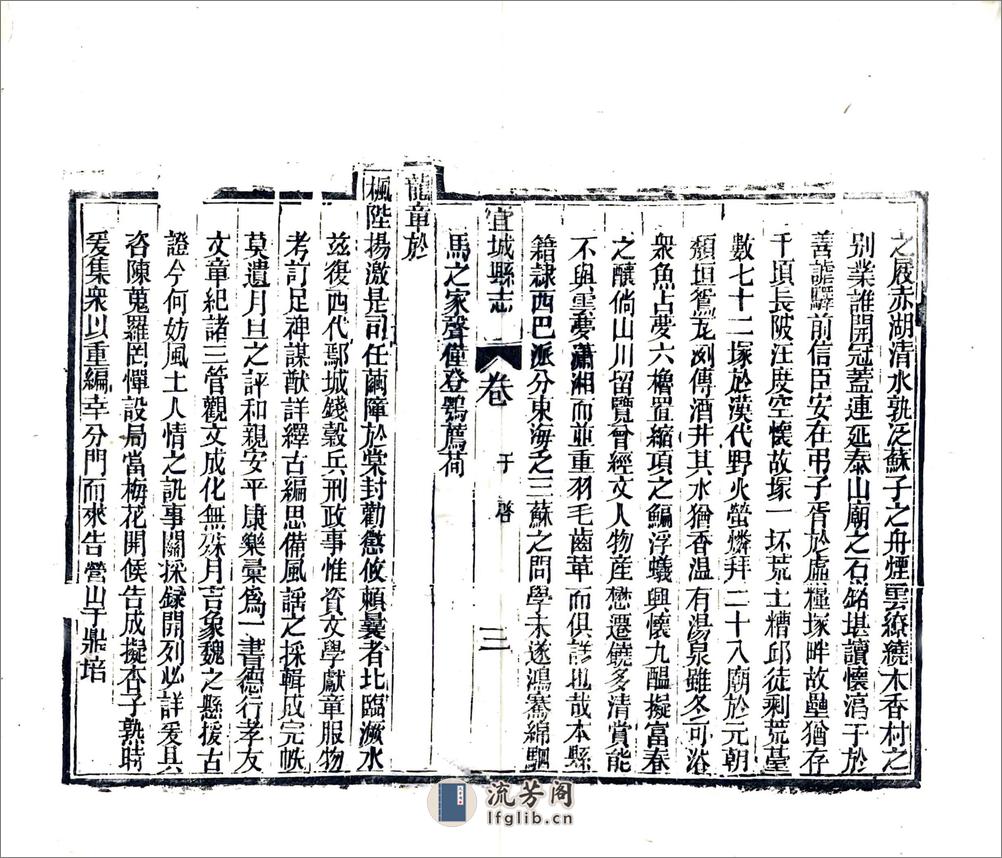 之屐赤湖清水孰泛蘇子之舟煙雲繚繞木香村之
別業誰開冠蓋連延泰山廟之石銘堪讀懷湻于於
善謔驛前信臣安在弔子胥於虛糧塚畔故壘猶存
千頃長陂汪度空懷故塚一坏荒土糟邱徒剩荒臺
數七十二塚於漢代野火螢燐拜二十八廟於元朝
頹垣鴛瓦洌傳酒井其水猶香温有湯泉雖冬可浴
衆魚占夢六櫓罾縮項之鯿浮蟻興懷九醞擬富春
之釀倘山川留覽曾經文人物産懋遷饒多清賞能
不與雲夢瀟湘而並重羽毛齒革而俱詳也哉本縣
籍隷西巴派分東海乏三蘇之問學未遂鴻騫綿駟
馬之家聲僅登鶚薦荷
宜城縣志
卷
于啓
三
龍章於
楓陛揚激是司任繭障於棠封勸懲攸賴曩者北臨溮水
兹復西代鄢城錢榖兵刑政事惟資文學獻章服物
考訂足裨謀猷詳繹古編思備風謡之採輯成完帙
莫遺月旦之評和親安平康樂彙爲一書德行孝友
文章紀諸三管觀文成化無殊月吉象魏之懸援古
證今何妨風土人情之訊事關採録開列必詳爰具
咨陳蒐羅罔憚設局當梅花開候告成擬杏子熟時
爰集衆以重編幸分門而來告營山于鼎培
流芳阁
lfglib.cn